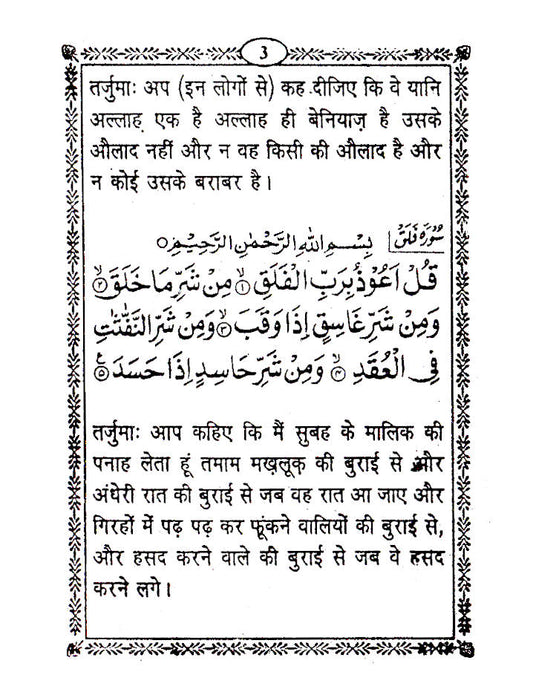 3
तर्जुमाः अप (इन लोगों से) कह दीजिए कि वे यानि
अल्लाह एक है अल्लाह ही बेनियाज़ है उसके
औलाद नहीं और न वह किसी की औलाद है और
न कोई उसके बराबर है।
سُورَة فَلَق بِسْمِ اللهِ الرَّحْمٰنِ الرَّحِيْمِ ٥
قُلْ اَعُوْذُ بِرَبِّ الْفَلَقِ ۙ﴿۱﴾ مِنْ شَرِّ مَا خَلَقَ ۙ﴿۲﴾
وَمِنْ شَرِّ غَاسِقٍ اِذَا وَقَبَ ۙ﴿۳﴾ وَمِنْ شَرِّ النَّفّٰثٰتِ
فِي الْعُقَدِ ۙ﴿۴﴾ وَمِنْ شَرِّ حَاسِدٍ اِذَا حَسَدَ ﴿۵﴾ ع
तर्जुमाः आप कहिए कि मैं सुबह के मालिक की
पनाह लेता हूं तमाम मख़लूक़ की बुराई से और
अंधेरी रात की बुराई से जब वह रात आ जाए और
गिरहों में पढ़ पढ़ कर फूंकने वालियों की बुराई से,
और हसद करने वाले की बुराई से जब वे हसद
करने लगे।